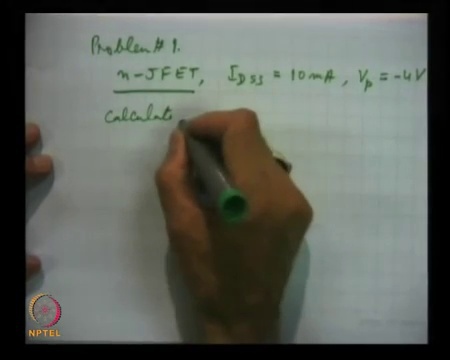 Problem # 1.
n-JFET, IDSS = 10 mA, Vp = -4V
Calculate
NPTEL